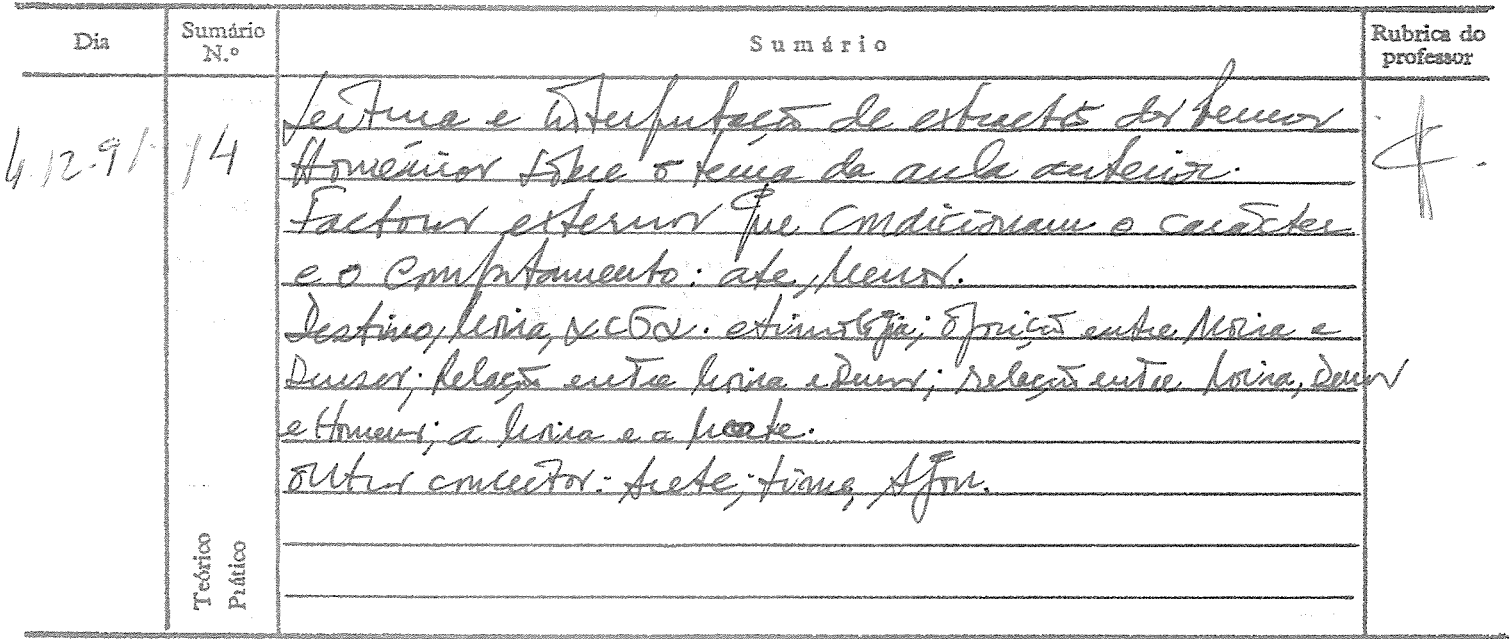 Dia Sumário N.º Sumário Rubrica do professor
4.12.91 14 Leitura e interpretação de extractos dos Poemas
Homéricos sobre o tema da aula anterior.
Factores externos que condicionam o carácter
e o comportamento: ate, menos.
Destino, Moira, etimologia; oposição entre Moira e
Deuses; Relação entre Moira e Deuses; relação entre Moira, Deuses
e Homens; a Moira e a Morte.
Outros conceitos: Arete; time, Agon.
Teórico
Prático